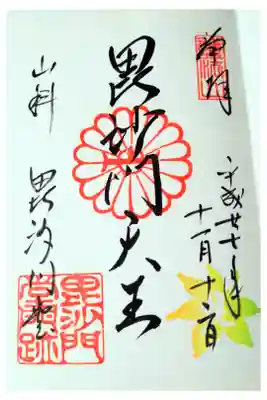 奉拝
平成廿七年
十一月十二日
毘沙門天王
山科 毘沙門堂
毘沙門
宮門跡